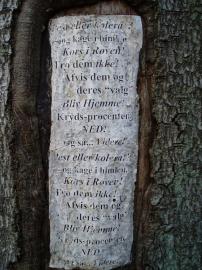 Pest eller kolera?
og kage i himlen
Kors i Røven!
Tro dem ikke!
Afvis dem og
deres "valg
Bliv Hjemme!
Kryds-procenten
NED!
og så... Videre!
Pest eller kolera?
og kage i himlen
Kors i Røven!
Tro dem ikke!
Afvis dem og
deres "valg
Bliv Hjemme!
Kryds-procenten
NED!